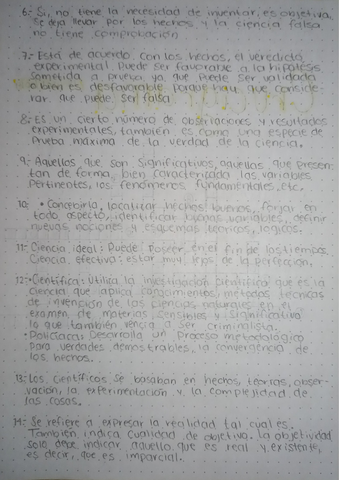 6.- Si, no tiene la necesidad de inventar, es objetiva,
se deja llevar por los hechos y la ciencia falsa
no tiene comprobación
7.- Está de acuerdo con los hechos, el veredicto
experimental puede ser favorable a la hipótesis
sometida a prueba ya que puede ser validada
o bien es desfavorable porque hay que conside-
rar que puede ser falsa
8.- ES un cierto número de observaciones y resultados
experimentales, también es como una especie de
prueba máxima de la verdad de la ciencia.
9.- Aquellos que son significativos, aquellas que presen-
tan de forma bien caracterizada las variables
pertinentes, los fenómenos fundamentales, etc.
10.- • Concebirla, localizar hechos buenos, forjar en
todo aspecto, identificar buenas variables, definir
nuevas nociones y esquemas teóricos, lógicos.
11.- Ciencia ideal: Puede poseer en el fin de los tiempos.
Ciencia efectiva: estar muy lejos de la perfección.
12.- • Científica: Utiliza la investigación científica que es la
ciencia que aplica conocimientos, métodos técnicas
de invención de las ciencias naturales en el
examen de materias sensibles y significativa
lo que también vencía a ser criminalista.
• Policiaca: Desarrolla un proceso metodológico
para verdades demostrables, la convergencia de
los hechos.
13.- Los científicos se basaban en hechos, teorías, obser-
vación, la experimentación y la complejidad de
las cosas.
14.- Se refiere a expresar la realidad tal cual es.
También indica cualidad de objetivo. La objetividad
solo debe indicar aquello que es real y existente,
es decir, que es imparcial.